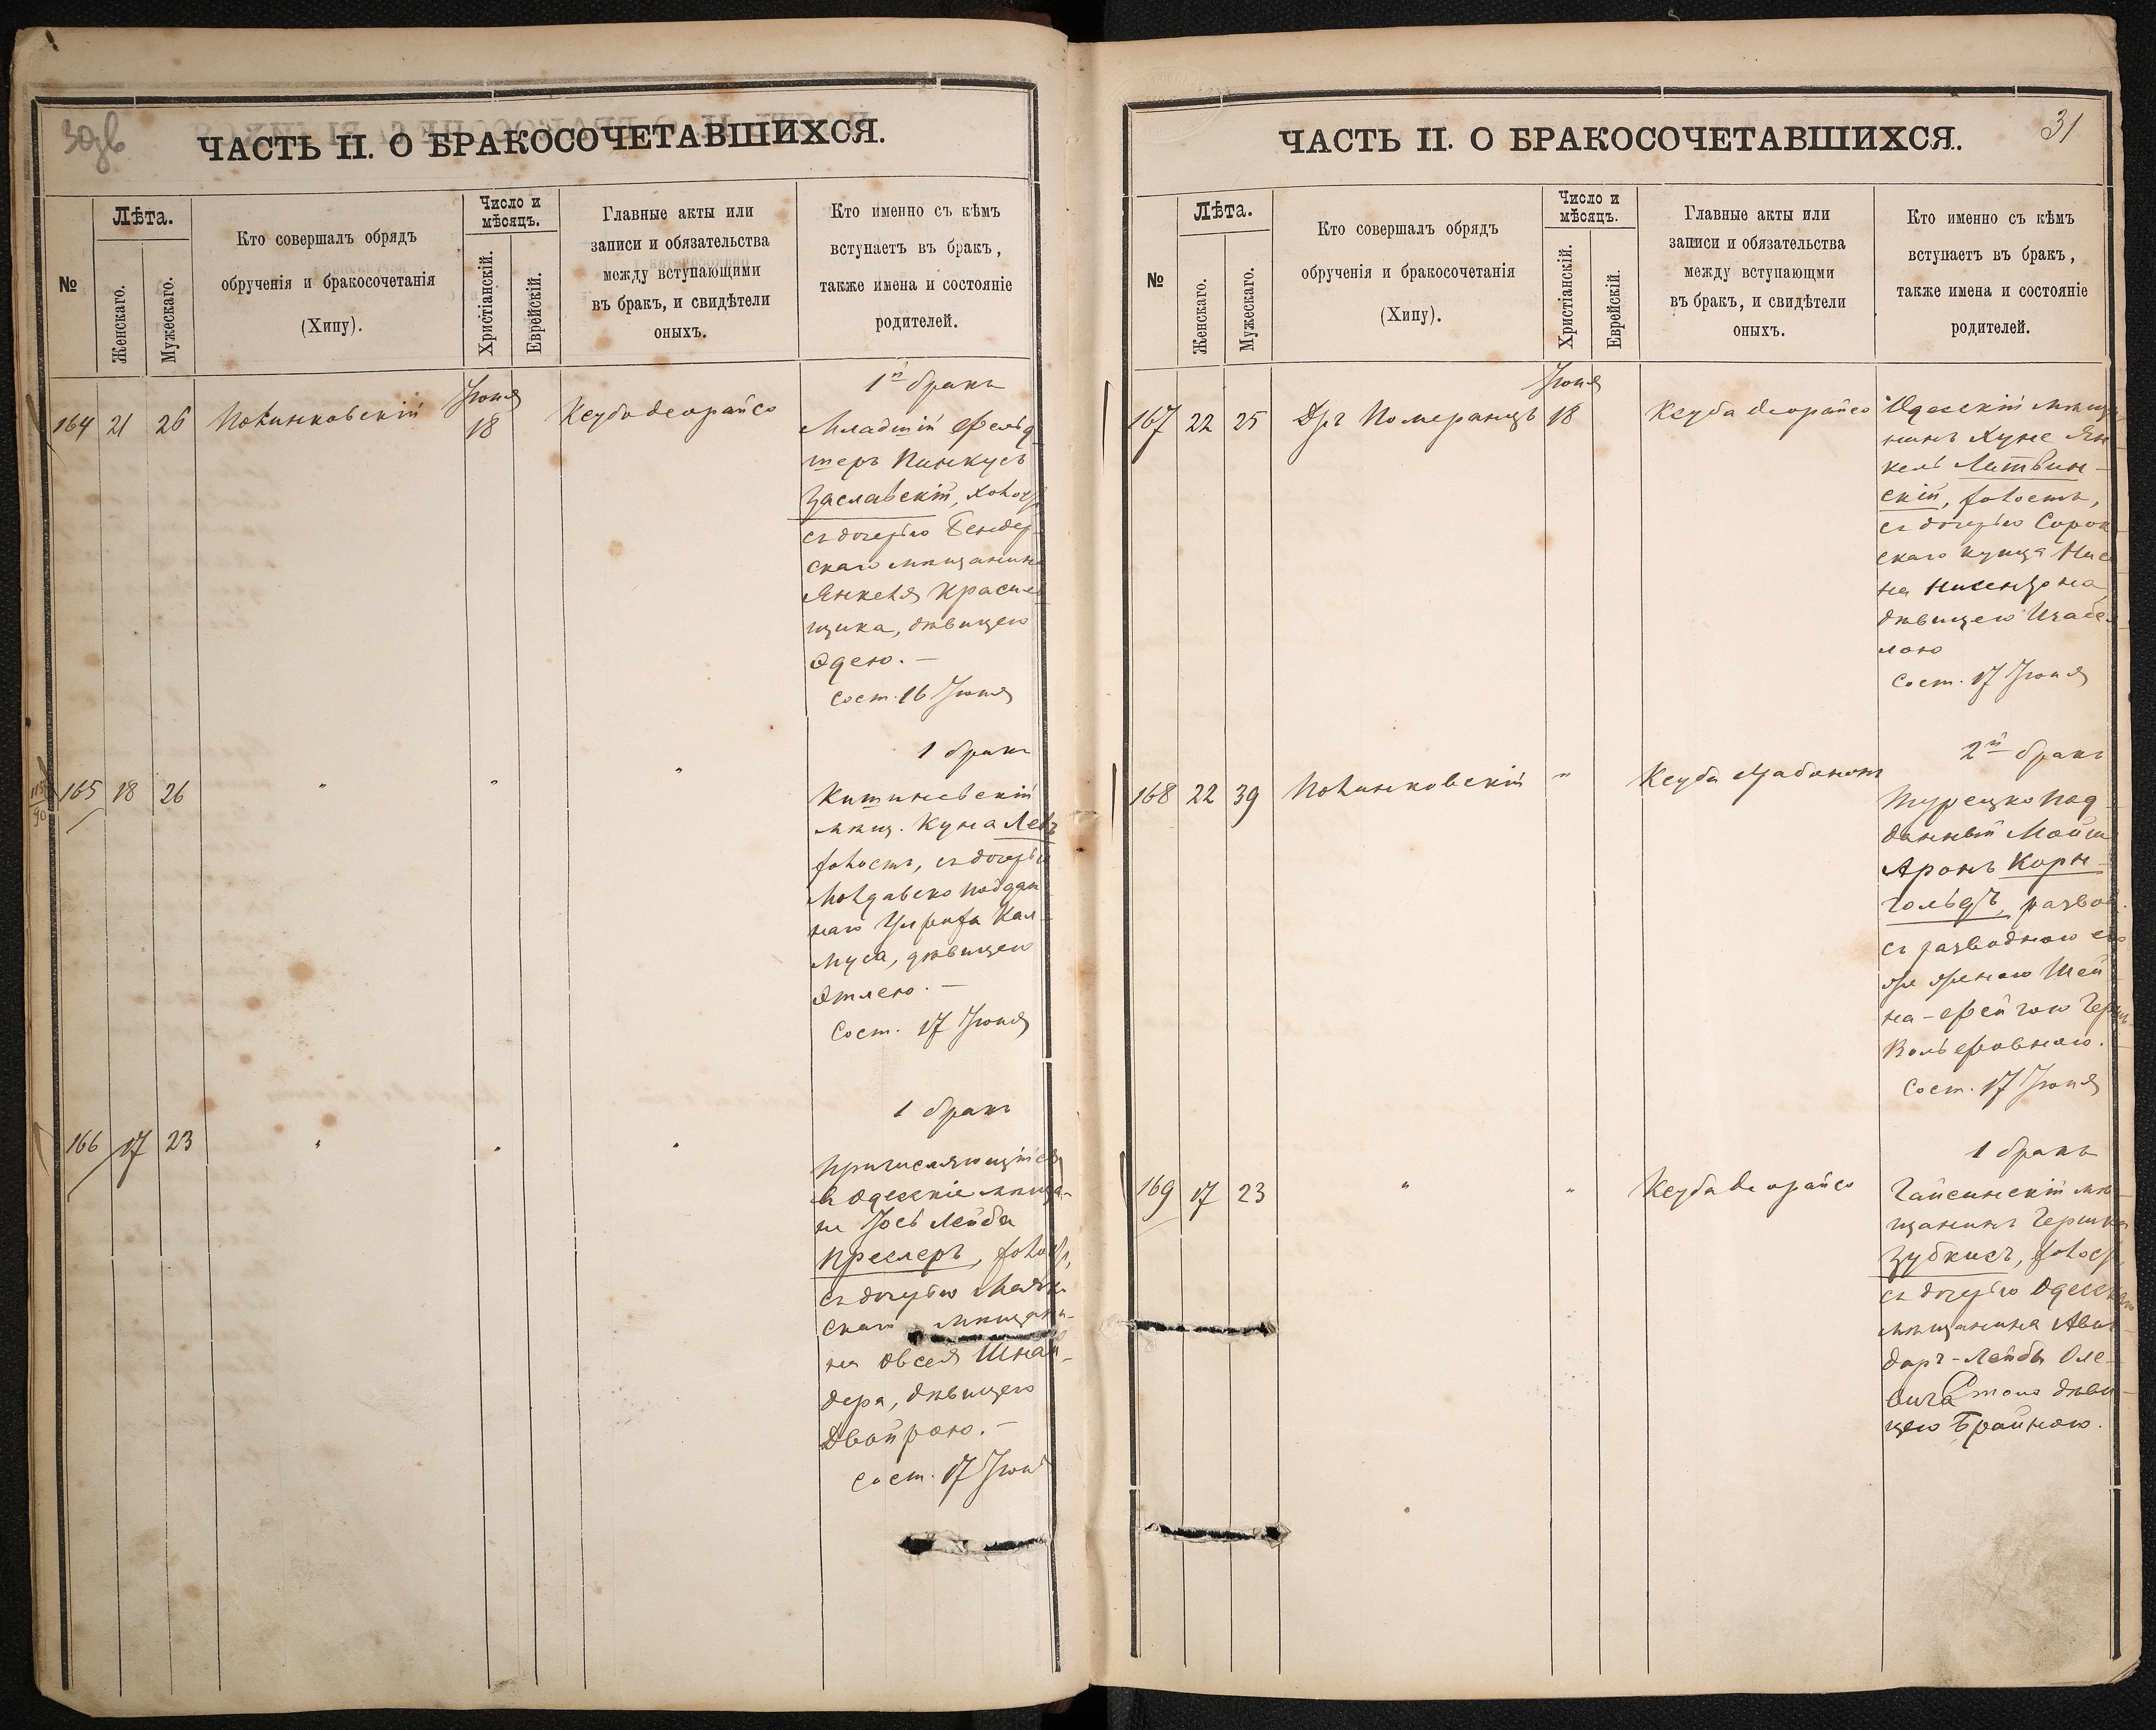 30 дв
ЧАСТЬ II. О БРАКОСОЧЕТАВШИХСЯ.
№
Лѣта.
Женскаго.
Мужескаго.
Кто совершалъ обрядъ
обрученія и бракосочетанія
(Хипу).
Число и
мѣсяцъ.
Христіанскій.
Еврейскій.
Главные акты или
записи и обязательства
между вступающими
въ бракъ, и свидѣтели
оныхъ.
Кто именно съ кѣмъ
вступаетъ въ бракъ,
также имена и состояніе
родителей.
164 21 26 Полинковскій Іюня 18 Кесуба деорайсо
1й бракъ
Младшій Фельд-
шеръ Пинкусъ
Заславскій, холост
съ дочерью Бендер-
скаго мѣщанина
Янкеля Красиль-
щика, дѣвицею
Эдею. —
Сост. 16 Іюня
165 18 26 " " "
1 бракъ
Кишиневскій
мѣщ. Куна Левъ
холостъ, съ дочерью
Молдавско поддан
наго Кал-
муса, дѣвицею
Этлею. —
Сост. 17 Іюня
166 17 23 " " "
1 бракъ
Причисляющійся
въ Одесскіе мѣща-
не Іось Лейба
Преслеръ, холост,
съ дочерью Маяк-
скаго мѣщани-
на Овсея Шнай-
дера, дѣвицею
Двойрою. —
сост. 17 Іюня
31
ЧАСТЬ II. О БРАКОСОЧЕТАВШИХСЯ.
№
Лѣта.
Женскаго.
Мужескаго.
Кто совершалъ обрядъ
обрученія и бракосочетанія
(Хипу).
Число и
мѣсяцъ.
Христіанскій.
Еврейскій.
Главные акты или
записи и обязательства
между вступающми
въ бракъ, и свидѣтели
оныхъ.
Кто именно съ кѣмъ
вступаетъ въ бракъ,
также имена и состояніе
родителей.
167 22 25 Дръ Померанцъ Іюня 18 Кесуба деорайсо
Одесскій мѣща-
нинъ Хуне Ян
кель Литвин-
скій, холостъ,
съ дочерью Сорок
скаго купца Нисе
на Нисензона
дѣвицею Изабе
лою
Сост. 17 Іюня
168 22 39 Полинковскій " Кесуба
2й бракъ
Турецко под
данный Мойше
Аронъ Корн-
гольдъ, развод.
съ разводною его
же женою Шей
на-Фейгою Герш
Вольфовною.
Сост. 17 Іюня
169 17 23 " " Кесуба деорайсо
1 бракъ
Гайсинскій мѣ-
щанинъ Гершко
Зубкисъ, холост,
съ дочерью Одесскаго
мѣщанина Авиг
доръ-Лейбы Оле-
вича Стоно дѣви-
цею Брайною.